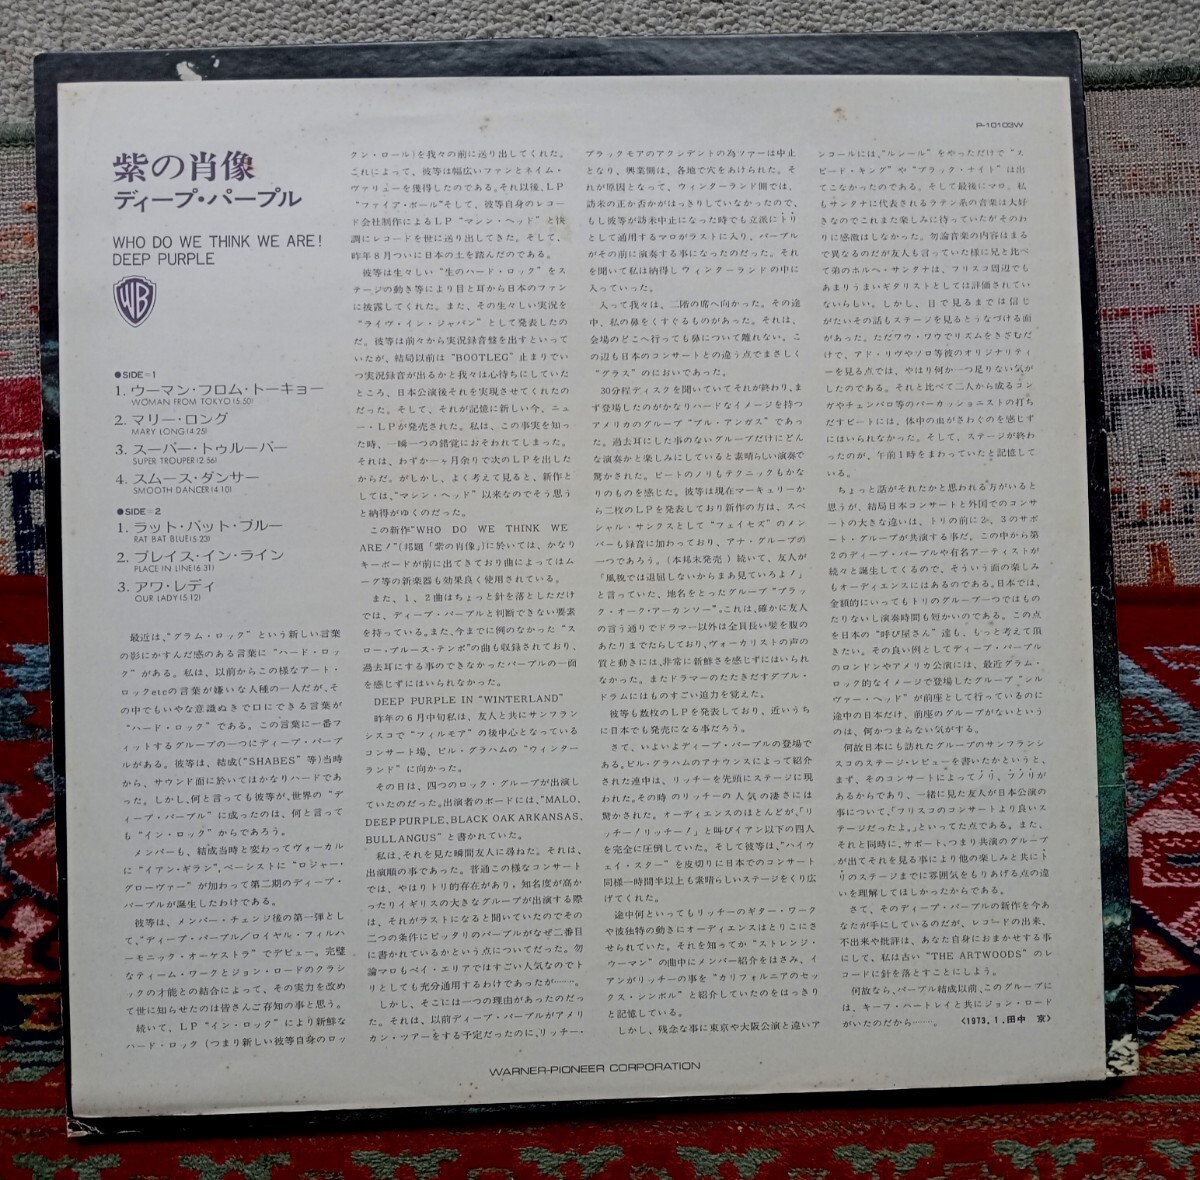 P-10103W
紫の肖像
ディープ・パープル
WHO DO WE THINK WE ARE!
DEEP PURPLE
WB
●SIDE=1
1. ウーマン・フロム・トーキョー
WOMAN FROM TOKYO(5.50)
2. マリー・ロング
MARY LONG(4.25)
3. スーパー・トゥルーパー
SUPER TROUPER(2.56)
4. スムース・ダンサー
SMOOTH DANCER(4.10)
●SIDE=2
1. ラット・バット・ブルー
RAT BAT BLUE(5.23)
2. プレイス・イン・ライン
PLACE IN LINE(6.31)
3. アワ・レディ
OUR LADY(5.12)
最近は、“グラム・ロック”という新しい言葉
の影にかすんだ感のある言葉に“ハード・ロッ
ク”がある。私は、以前からこの様なアート・
ロックetcの言葉が嫌いな人種の一人だが、そ
の中でもいやな意識ぬきで口にできる言葉が
“ハード・ロック”である。この言葉に一番フ
ィットするグループの一つにディープ・パープ
ルがある。彼等は、結成(“SHABES”等)当時
から、サウンド面に於いてはかなりハードであ
った。しかし、何と言っても彼等が、世界の“デ
ィープ・パープル”に成ったのは、何と言って
も“イン・ロック”からであろう。
メンバーも、結成当時と変わってヴォーカル
に“イアン・ギラン”、ベーシストに“ロジャー・
グローヴァー”が加わって第二期のディープ・
パープルが誕生したわけである。
彼等は、メンバー・チェンジ後の第一弾とし
て、“ディープ・パープル/ロイヤル・フィルハ
ーモニック・オーケストラ”でデビュー。完璧
なティーム・ワークとジョン・ロードのクラシ
ックの才能との結合によって、その実力を改め
て世に知らせたのは皆さんご存知の事と思う。
続いて、LP“イン・ロック”により新鮮な
ハード・ロック(つまり新しい彼等自身のロッ
クン・ロール)を我々の前に送り出してくれた。
これによって、彼等は幅広いファンとネイム・
ヴァリューを獲得したのである。それ以後、LP
“ファイア・ボール”そして、彼等自身のレコー
ド会社制作によるLP“マシン・ヘッド”と快
調にレコードを世に送り出してきた。そして、
昨年8月ついに日本の土を踏んだのである。
彼等は生々しい“生のハード・ロック”をス
テージの動き等により目と耳から日本のファン
に披露してくれた。また、その生々しい実況を
“ライヴ・イン・ジャパン”として発表したの
だ。彼等は前々から実況録音盤を出すといって
いたが、結局以前は“BOOTLEG”止まりでい
つ実況録音が出るかと我々は心待ちにしていた
ところ、日本公演後それを実現させてくれたの
だった。そして、それが記憶に新しい今、ニュ
ー・LPが発売された。私は、この事実を知っ
た時、一瞬一つの錯覚におそわれてしまった。
それは、わずか一ヶ月余りで次のLPを出した
からだ。がしかし、よく考えて見ると、新作と
しては、“マシン・ヘッド”以来なのでそう思う
と納得がゆくのだった。
この新作“WHO DO WE THINK WE
ARE!”(邦題「紫の肖像」)に於いては、かなり
キーボードが前に出てきており曲によってはム
ーグ等の新楽器も効果良く使用されている。
また、1、2曲はちょっと針を落としただけ
では、ディープ・パープルと判断できない要素
を持っている。また、今までに例のなかった“ス
ロー・ブルース・テンポ”の曲も収録されており、
過去耳にする事のできなかったパープルの一面
を感じずにはいられなかった。
DEEP PURPLE IN “WINTERLAND”
昨年の6月中旬私は、友人と共にサンフラン
シスコで“フィルモア”の後中心となっている
コンサート場、ビル・グラハムの“ウィンター
ランド”に向かった。
その日は、四つのロック・グループが出演し
ていたのだった。出演者のボードには、“MALO,
DEEP PURPLE, BLACK OAK ARKANSAS,
BULL ANGUS”と書かれていた。
私は、それを見た瞬間友人に尋ねた。それは、
出演順の事であった。普通この様なコンサート
では、やはりトリ的存在があり、知名度が高か
ったりイギリスの大きなグループが出演する際
は、それがラストになると聞いていたのでその
二つの条件にピッタリのパープルがなぜ二番目
に書かれているかという点についてだった。勿
論マロもベイ・エリアではすごい人気なのでト
リとしても充分通用するわけであったが……。
しかし、そこには一つの理由があったのだっ
た。それは、以前ディープ・パープルがアメリ
カン・ツアーをする予定だったのに、リッチー・
ブラックモアのアクシデントの為ツアーは中止
となり、興業側は、各地で穴をあけられた。そ
れが原因となって、ウィンターランド側では、
訪米の正か否かがはっきりしていなかったので、
もし彼等が訪米中止になった時でも立派にトリ
として通用するマロがラストに入り、パープル
がその前に演奏する事になったのだった。それ
を聞いて私は納得しウィンターランドの中に
入っていった。
入って我々は、二階の席へ向かった。その途
中、私の鼻をくすぐるものがあった。それは、
会場のどこへ行っても鼻について離れない。こ
の辺も日本のコンサートとの違う点でまさしく
“グラス”のにおいであった。
30分程ディスクを聞いていてそれが終わり、ま
ず登場したのがかなりハードなイメージを持つ
アメリカのグループ“ブル・アンガス”であっ
た。過去耳にした事のないグループだけにどん
な演奏かと楽しみにしていると素晴らしい演奏で
驚かされた。ビートのノリもテクニックもかな
りのものを感じた。彼等は現在マーキュリーか
ら二枚のLPを発表しており新作の方は、スペ
シャル・サンクスとして“フェイセズ”のメン
バーも録音に加わっており、アナ・グループの
一つであろう。(本邦未発売)続いて、友人が
「風貌では退屈しないからまあ見ていろよ!」
と言っていた、地名をとったグループ“ブラッ
ク・オーク・アーカンソー”。これは、確かに友人
の言う通りでドラマー以外は全員長い髪を腹の
あたりまでたらしており、ヴォーカリストの声の
質と動きには、非常に新鮮さを感じずにはいられ
なかった。またドラマーのたたきだすダブル・
ドラムにはものすごい迫力を覚えた。
彼等も数枚のLPを発表しており、近いうち
に日本でも発売になる事だろう。
さて、いよいよディープ・パープルの登場で
ある。ビル・グラハムのアナウンスによって紹介
された連中は、リッチーを先頭にステージに現
われた。その時のリッチーの人気の凄さには
驚かされた。オーディエンスのほとんどが、「リ
ッチー!リッチー!」と叫びイアン以下の四人
を完全に圧倒していた。そして彼等は、“ハイウ
ェイ・スター”を皮切りに日本でのコンサート
同様一時間半以上も素晴らしいステージをくり広
げてくれた。
途中何といってもリッチーのギター・ワーク
や彼独特の動きにオーディエンスはとりこにさ
せられていた。それを知ってか“ストレンジ・
ウーマン”の曲中にメンバー紹介をはさみ、イ
アンがリッチーの事を“カリフォルニアのセッ
クス・シンボル”と紹介していたのをはっきり
と記憶している。
しかし、残念な事に東京や大阪公演と違いア
ンコールには、“ルシール”をやっただけで“ス
ピード・キング”や“ブラック・ナイト”は出
てこなかったのである。そして最後にマロ。私
もサンタナに代表されるラテン系の音楽は大好
きなのでこれまた楽しみに待っていたがそのわ
りに感激はしなかった。勿論音楽の内容はまる
で異なるのだが友人も言っていた様に兄と比べ
て弟のホルヘ・サンタナは、フリスコ周辺でも
あまりうまいギタリストとしては評価されてい
ないらしい。しかし、目で見るまでは信じ
がたいその話もステージを見るとうなづける面
があった。ただワウ・ワウでリズムをきざむだ
けで、アド・リヴやソロ等彼のオリジナリティ
ーを見る点では、やはり何か一つ足りない気が
したのである。それと比べて二人から成るコン
ガやチェンバロ等のパーカッショニストの打ち
だすビートには、体中の血がさわぐのを感じず
にはいられなかった。そして、ステージが終わ
ったのが、午前1時をまわっていたと記憶して
いる。
ちょっと話がそれたかと思われる方がいると
思うが、結局日本コンサートと外国でのコンサ
ートの大きな違いは、トリの前に2、3のサポ
ート・グループが共演する事だ。この中から第
2のディープ・パープルや有名アーティストが
続々と誕生してくるので、そういう面の楽しみ
もオーディエンスにはあるのである。日本では、
金額的にいってもトリのグループ一つではもの
たりないし演奏時間も短かいのである。この点
を日本の“呼び屋さん”達も、もっと考えて頂
きたい。その良い例としてディープ・パープル
のロンドンやアメリカ公演には、最近グラム・
ロック的なイメージで登場したグループ“シル
ヴァー・ヘッド”が前座として行っているのに
途中の日本だけ、前座のグループがないという
のは、何かつまらない気がする。
何故日本にも訪れたグループのサンフランシ
スコのステージ・レビューを書いたかというと、
まず、そのコンサートによってノリ、フンリが
あるからであり、一緒に見た友人が日本公演の
事について、「フリスコのコンサートより良いス
テージだったよ。」といってた点である。また、
それと同時に、サポート、つまり共演のグループ
が出てそれを見る事により他の楽しみと共にト
リのステージまでに雰囲気をもりあげる点の違
いを理解してほしかったからである。
さて、そのディープ・パープルの新作を今あ
なたが手にしているのだが、レコードの出来、
不出来や批評は、あなた自身におまかせする事
にして、私は古い“THE ARTWOODS”のレ
コードに針を落とすことにしよう。
何故なら、パープル結成以前、このグループに
は、キーフ・ハートレイと共にジョン・ロード
がいたのだから……。
〈1973.1.田中 京〉
WARNER-PIONEER CORPORATION